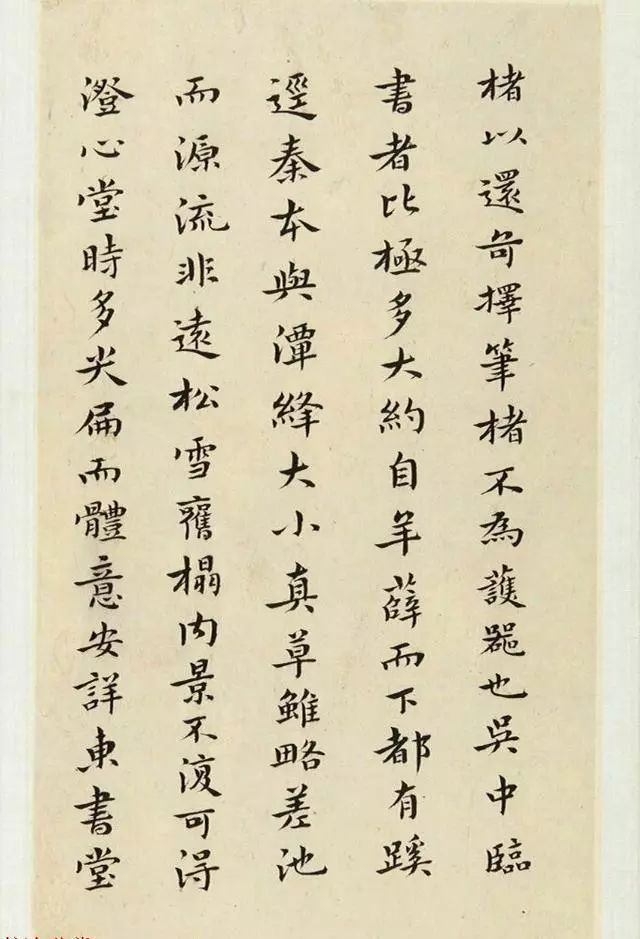 楮以還每擇筆楮不為護器也吳中臨
書者比極多大約自羊薛而下都有蹊
逕秦本與潭絳大小真草雖略差池
而源流非遠松雪舊榻內景不復可得
澄心堂時多尖匾而體意安詳東書堂